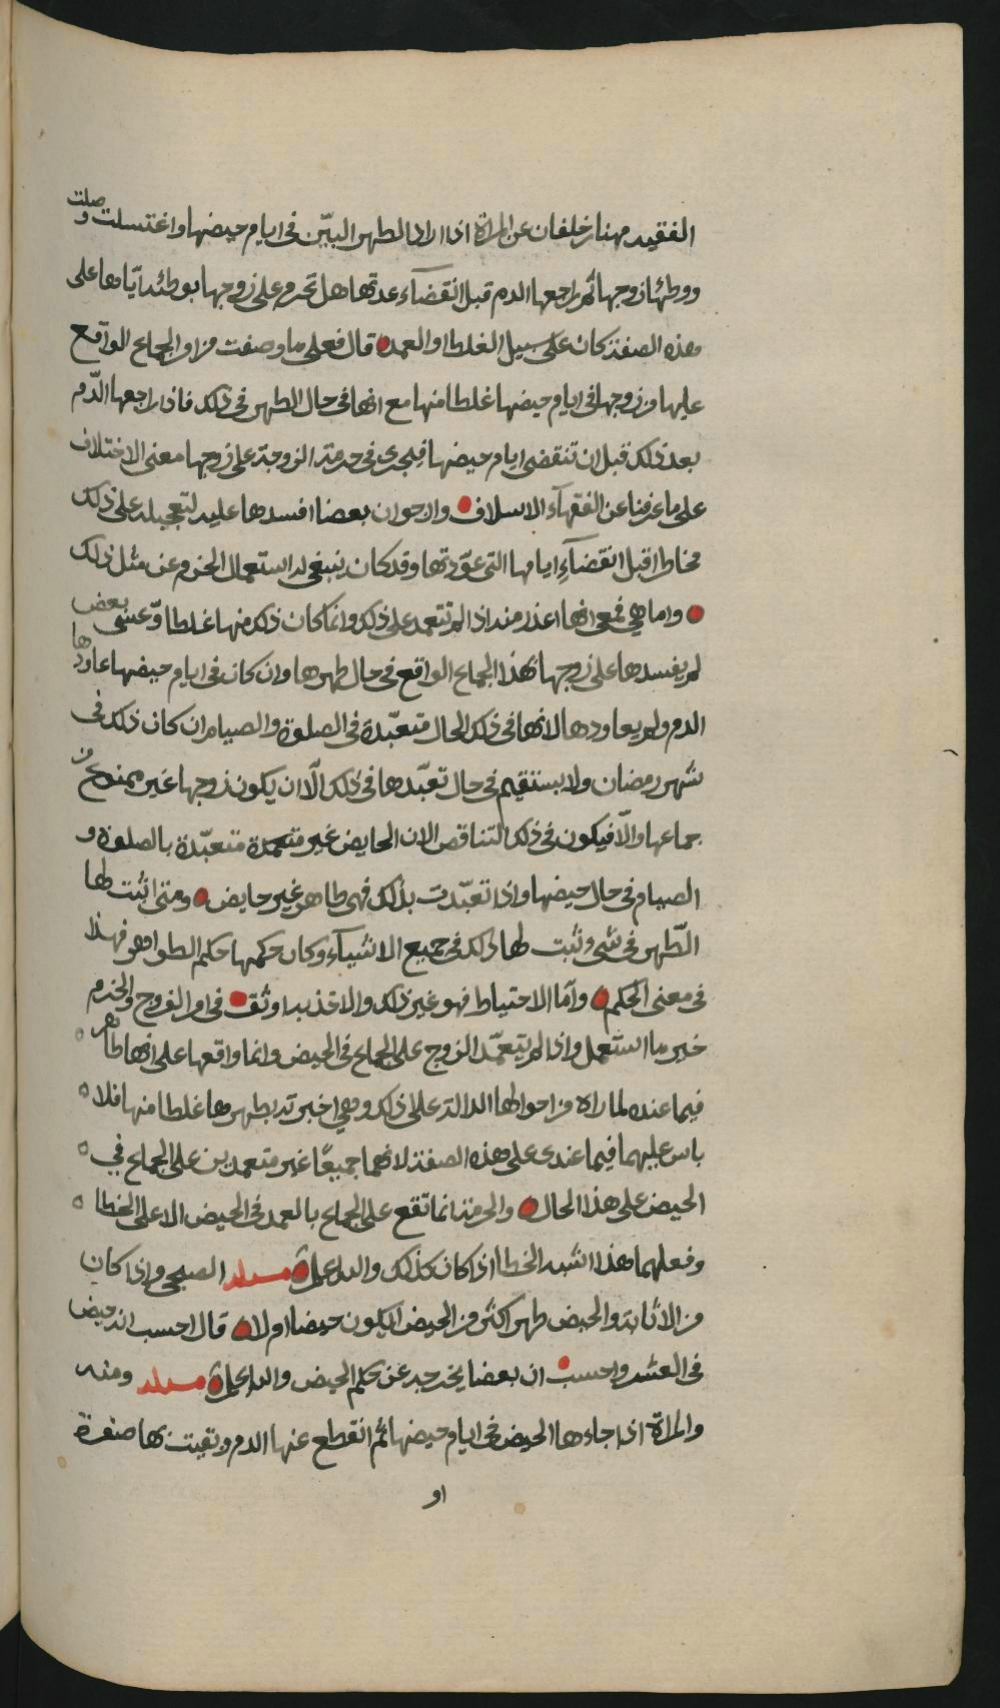 الفقيه مهنا بن خلفان عن المراة اذا ارات الطهر البيّن في ايام حيضها واغتسلت وصلت
ووطئها زوجها ثم راجعها الدم قبل انقضآء عدتها هل تحرم على زوجها بوطئه اياها على
هذه الصفة كان على سبيل الغلط او العمد قال فعلى ما وصفت من امر الجماع الواقع
عليها من زوجها في ايام حيضها غلطا منها مع انها في حال الطهر في ذلك فاذا راجعها الدّم
بعد ذلك قبل ان تنقضي ايام حيضها فيجري في حرمة الزوجة على زوجها معنى الاختلاف
على ما عرفنا عن الفقهآء الاسلاف وارجو ان بعضا افسدها عليه لتعجيله على ذلك
مخاطرا قبل انقضآءِ ايامها التي عوّدتها وقد كان ينبغي له استعمال الحزم عن مثل ذلك
واما هي فمعي انها اعذر منه اذ لم تتعمد على ذلك وانما كان ذلك منها غلطا وّعسى بعض
لم يفسدها على زوجها بهذا الجماع الواقع في حال طهرها وان كان في ايام حيضها عاودها
الدم او لم يعاودها لانها في ذلك الحال متعبّدة في الصلوة والصيام ان كان ذلك في
شهر رمضان ولا يستقيم في حال تعبّدها في ذلك الّا ان يكون زوجها غير ممنوع من
جماعها والّا فيكون في ذلك التناقص لان الحايض غير متعبدة متعبّدة بالصلوة و
الصيام في حال حيضها واذا تعبّدت بذلك فهي طاهر غير حايض ومتى اثبت لها
الطّهر في شي وثبت لها ذلك في جميع الاشيآء وكان حكمها حكم الطواهر فهذا
في معنى الحكم وآما الاحتياط فهو غير ذلك والاخذ به اوثق في امر الفروج والحزم
خير ما استعمل واذا لم يتعمّد الزوج على الجماع في الحيض وانما واقعها على انها طاهر
فيما عنده لما راه من احوالها الدالة على ذلك وهي اخبرته بطهرها غلطا منها فلا
باس عليهما فيما عندي على هذه الصفة لانهما جميعًا غير متعمدين على الجماع في
الحيض على هذا الحال والحرمة انما تقع على الجماع بالعمد في الحيض لا على الخطا
وفعلهما هذا اشبه الخطا اذا كان كذلك والله اعلم مسئلة الصبحي واذا كان
من الاثابة والحيض طهر اكثر من الحيض ايكون حيضا ام لا قال احسب انه حيض
في العشر واحسب ان بعضا يخرجه عن حكم الحيض والله اعلم مسئلة ومنه
والمراة اذا جاءها الحيض في ايام حيضها ثم انقطع عنها الدم وبقيت بها صفرة
او